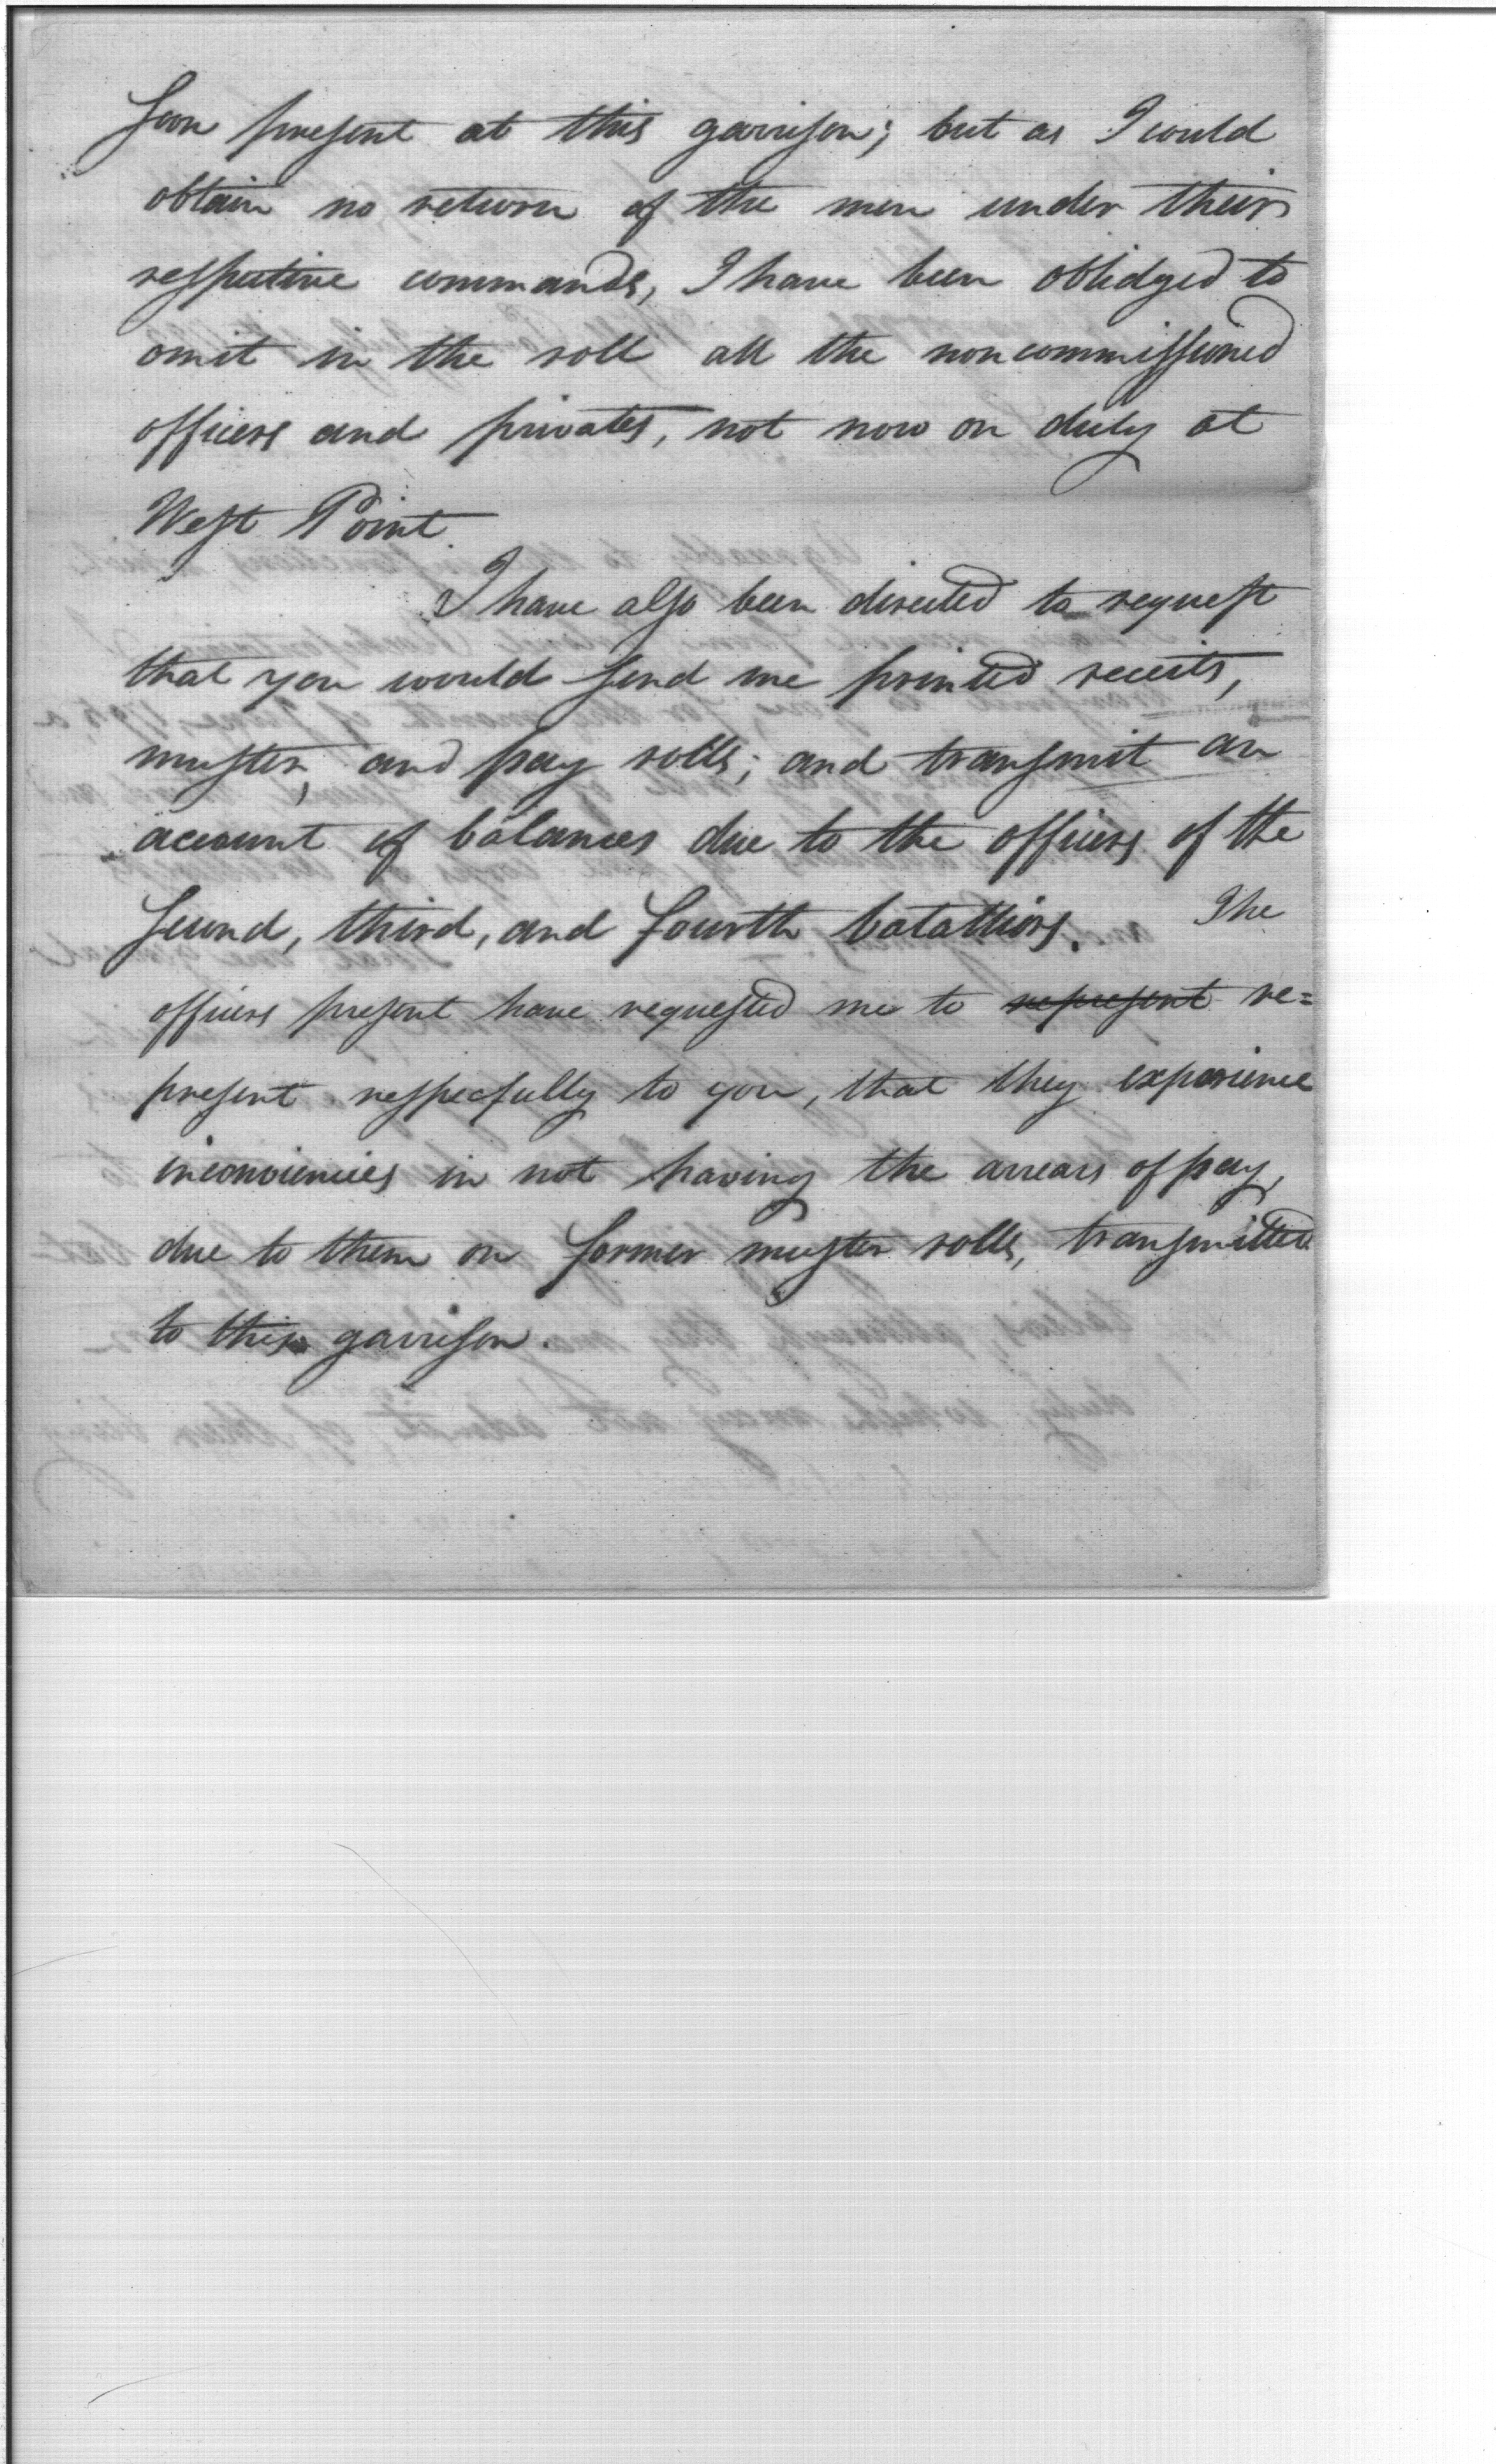 soon present at this garrison; but as I could
obtain no return of the men under their
respective commands, I have been oblidged to
omit in the roll all the noncommissioned
officers and privates, not now on duty at
West Point.
I have also been directed to request
that you would send me printed receits,
muster, and pay rolls; and transmit an
account of balances due to the officers of the
second, third, and fourth batallions. The
officers present have requested me to represent re=
present respecfully to you, that they experience
inconviencies in not having the arrears of pay,
due to them on former muster rolls, transmitted
to this garrison.